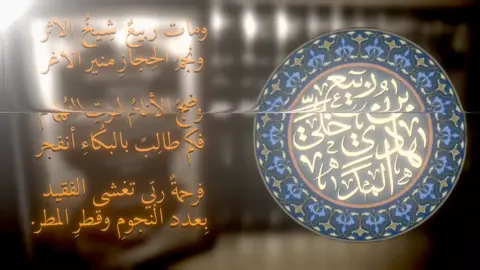 ومات ربيعٌ شيخُ الاثر
ونجمُ الحجازِ منير الاغر
وضجّ الأنامُ لموتِ الهمام
فكم طالبٍ بالبكاءِ أنفجر
فرحمةُ ربّي تغشى الفقيد
بعدد النجومِ وقطرِ المطر.
ربيع بن هادي المدخلي